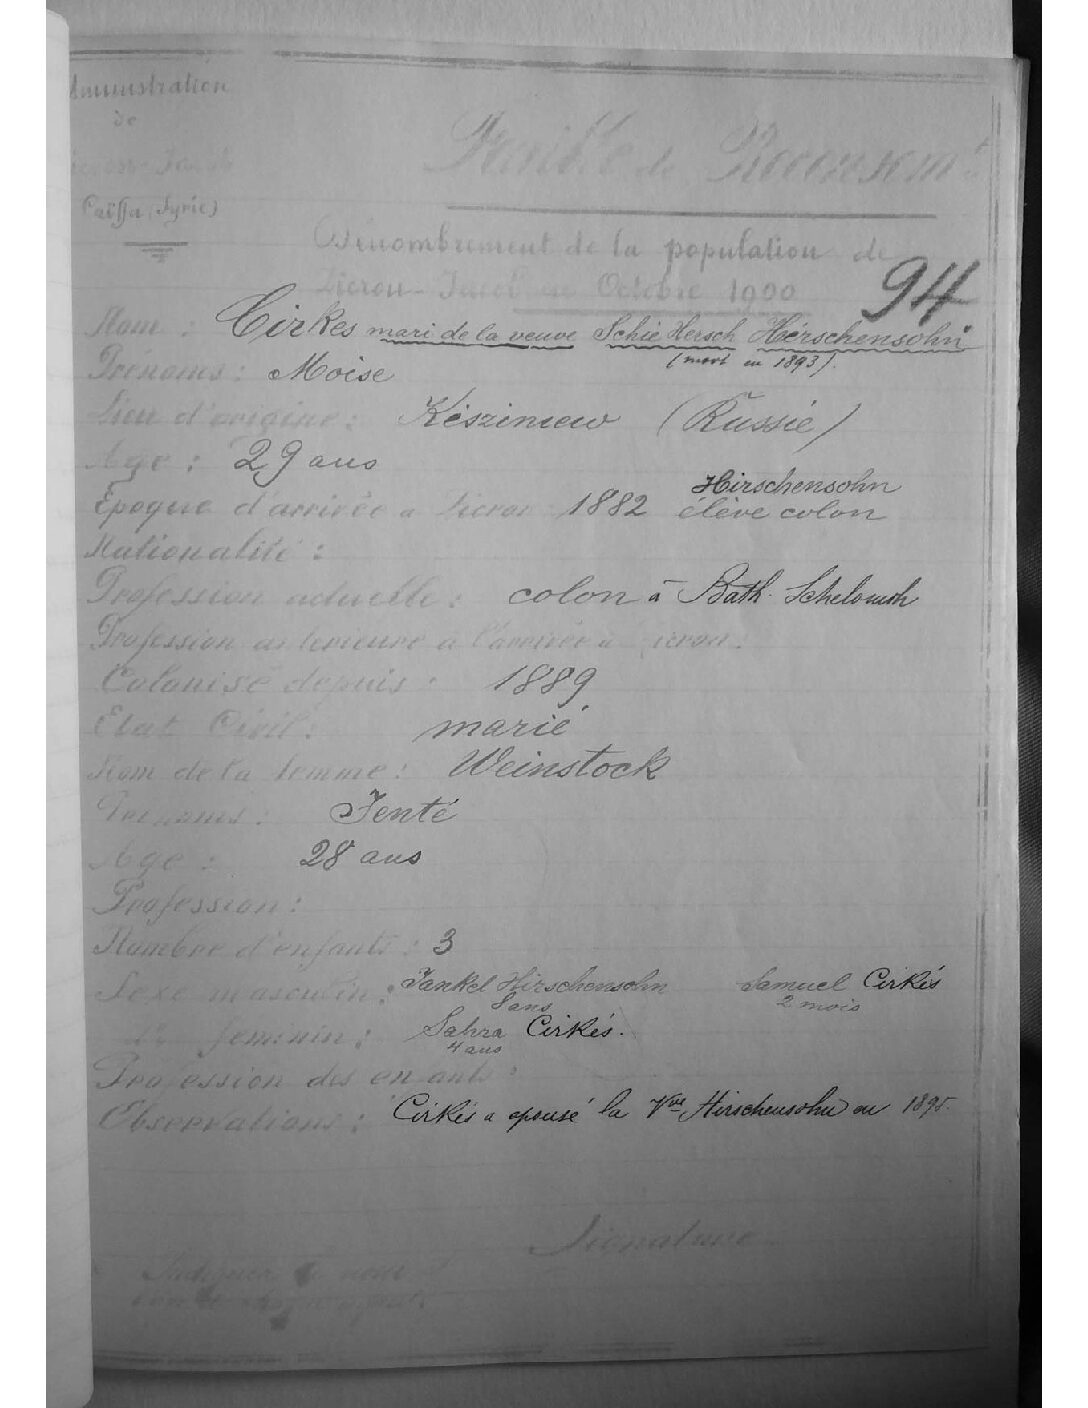 Administration
de
Caïffa (Syrie)
Feuille de Recensemt
Dénombrement de la population de
Zicron-Jacob en Octobre 1900
94
Nom : Cirkes mari de la veuve Schie Hersch Hérschensohn
(mort en 1893).
Prénoms : Moise
Lieu d'origine : Késziniew (Russie)
Age : 29 ans
Hirschensohn
Epoque d'arrivée a Zicron 1882 élève colon
Nationalité :
Profession actuelle : colon à Bath. Schelomoh
Profession anterieure a l'arrivée a Zicron :
Colonisé depuis : 1889
Etat Civil : marié
Nom de la femme : Weinstock
Prénoms : Jenté
Age : 28 ans
Profession :
Nombre d'enfants : 3
Sexe masculin : Jankel Hirschensohn Samuel Cirkés
8 ans 2 mois
feminin : Sahra Cirkés.
4 ans
Profession des enfants :
Observations : Cirkés a epousé la Vve Hirschensohn en 1895.
Signature
Indiquer nom